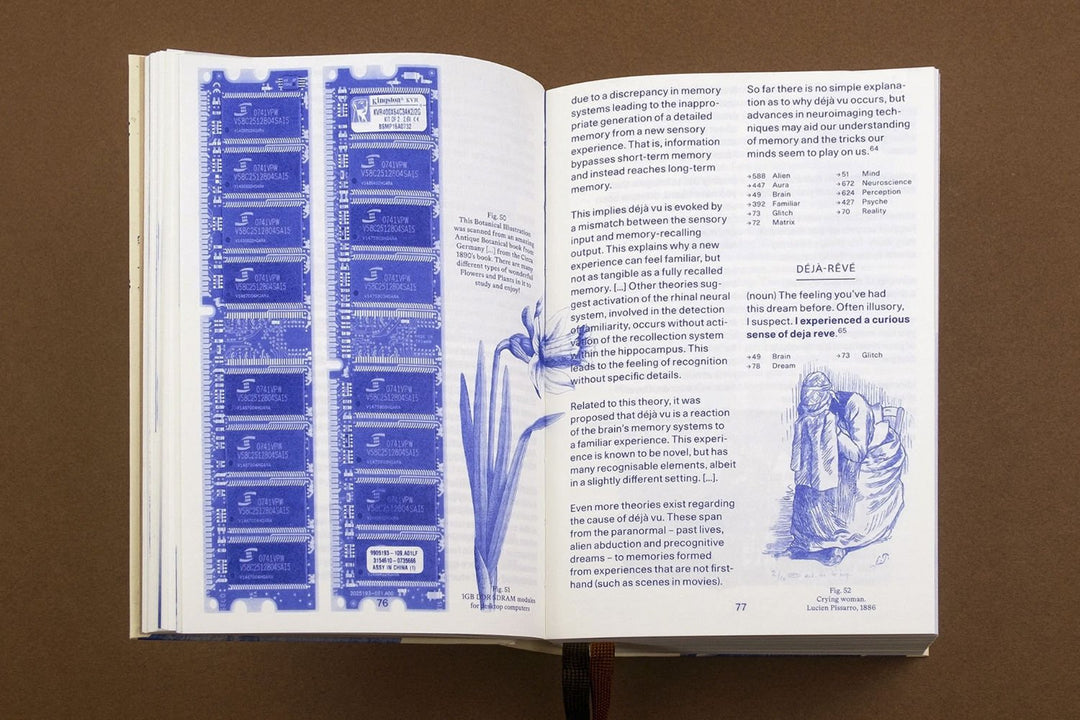 0741VPW
V58C2512804SAI5
0741VPW
V58C2512804SAI5
0741VPW
V58C2512804SAI5
0741VPW
V58C2512804SAI5
0741VPW
V58C2512804SAI5
0741VPW
V58C2512804SAI5
0741VPW
V58C2512804SAI5
0741VPW
V58C2512804SAI5
Kingston® KVR
KIT OF 2
0741VPW
V58C2512804SAI5
0741VPW
V58C2512804SAI5
0741VPW
V58C2512804SAI5
0741VPW
V58C2512804SAI5
0741VPW
V58C2512804SAI5
0741VPW
V58C2512804SAI5
ASSY IN CHINA (1)
76
Fig. 50
This Botanical Illustration
was scanned from an amazing
Antique Botanical book from
Germany [...] from the Circa
1890's book. There are many
different types of wonderful
Flowers and Plants in it to
study and enjoy!
Fig. 51
1GB DDR SDRAM modules
for desktop computers
due to a discrepancy in memory
systems leading to the inappro-
priate generation of a detailed
memory from a new sensory
experience. That is, information
bypasses short-term memory
and instead reaches long-term
memory.
This implies déjà vu is evoked by
a mismatch between the sensory
input and memory-recalling
output. This explains why a new
experience can feel familiar, but
not as tangible as a fully recalled
memory. [...] Other theories sug-
gest activation of the rhinal neural
system, involved in the detection
of familiarity, occurs without acti-
vation of the recollection system
within the hippocampus. This
leads to the feeling of recognition
without specific details.
Related to this theory, it was
proposed that déjà vu is a reaction
of the brain's memory systems to
a familiar experience. This experi-
ence is known to be novel, but has
many recognisable elements, albeit
in a slightly different setting. [...].
Even more theories exist regarding
the cause of déjà vu. These span
from the paranormal – past lives,
alien abduction and precognitive
dreams – to memories formed
from experiences that are not first-
hand (such as scenes in movies).
So far there is no simple explana-
tion as to why déjà vu occurs, but
advances in neuroimaging tech-
niques may aid our understanding
of memory and the tricks our
minds seem to play on us.64
→588 Alien
→447 Aura
→49 Brain
→392 Familiar
→73 Glitch
→72 Matrix
→51 Mind
→672 Neuroscience
→624 Perception
→427 Psyche
→70 Reality
DÉJÀ-RÊVÉ
(noun) The feeling you've had
this dream before. Often illusory,
I suspect. I experienced a curious
sense of deja reve.65
→49 Brain
→78 Dream
→73 Glitch
Fig. 52
Crying woman.
Lucien Pissarro, 1886
77